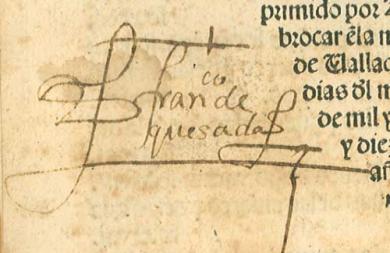 primido por
brocar ẽla m
de Ualla
dias d̾l m
de mil y
y die
añ
fran^co de
quesada